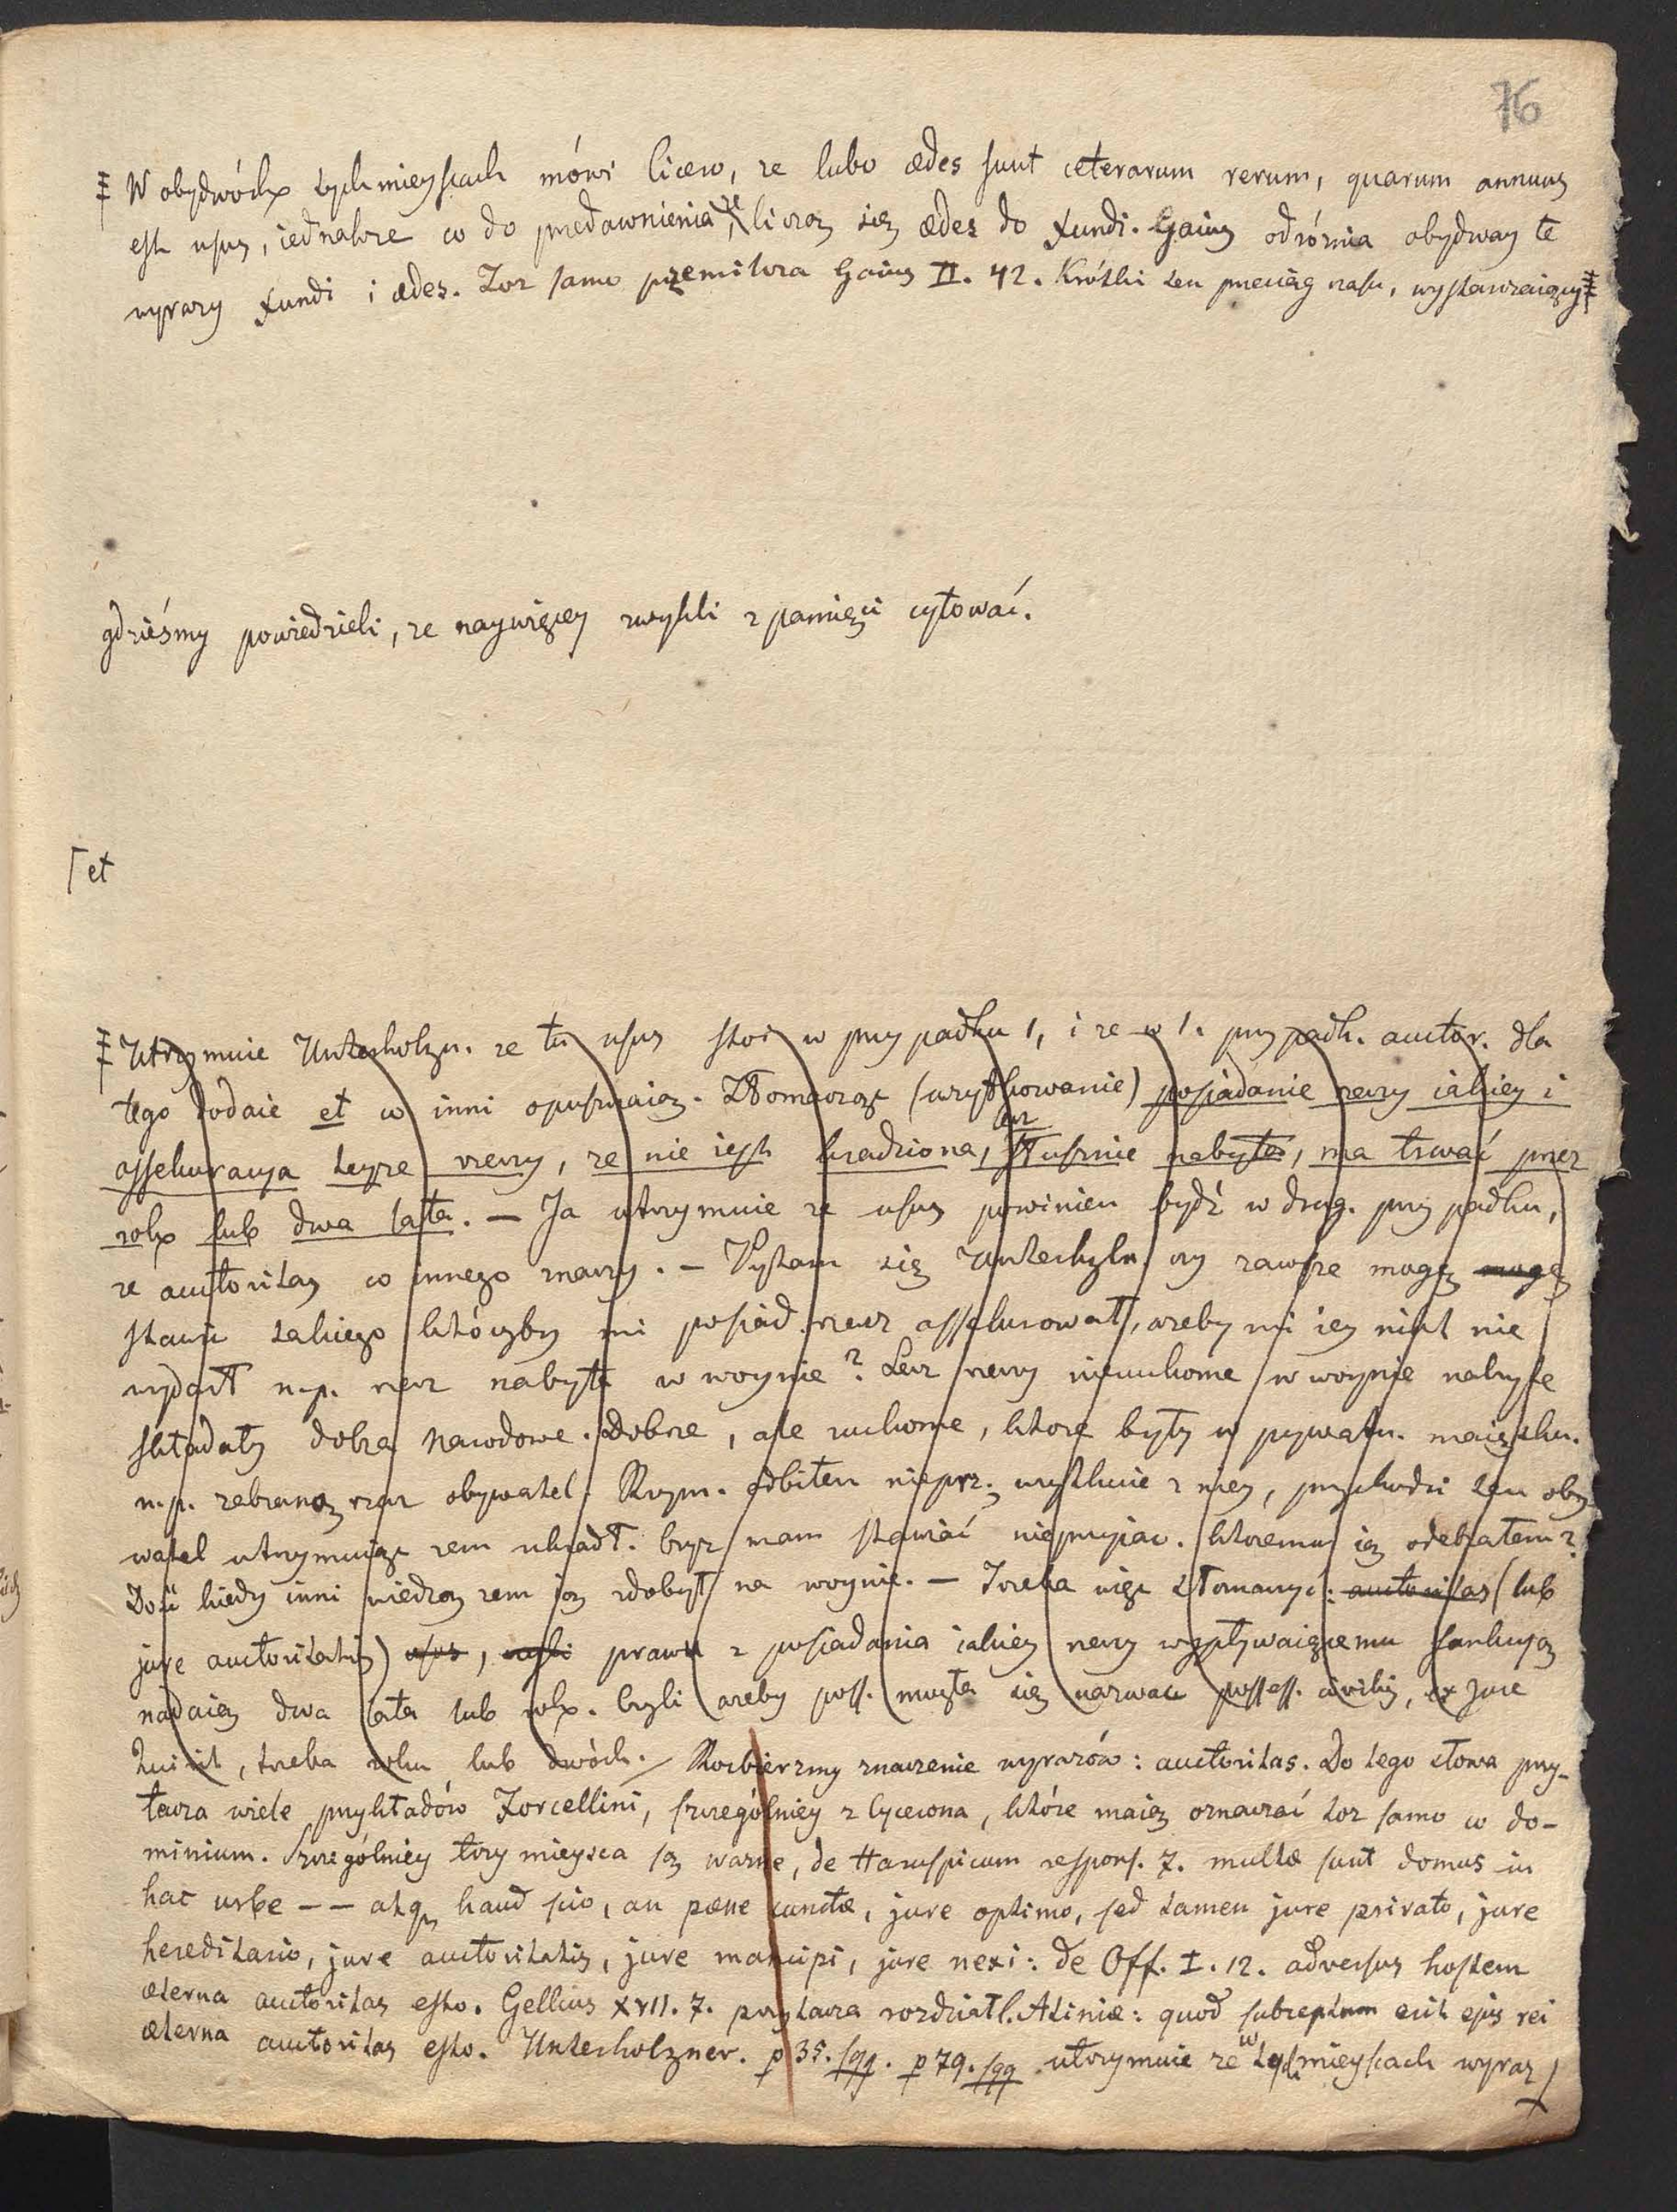 76
W obydwóch tych mieyscach mówi Cicero, ze lubo ædes sunt ceterarum rerum, quarum annuus
est usus, iednakze co do predawnienia, ze liczą się ædes do fundi. Gaius odróżnia obydway te
wyrazy fundi i ædes. Toz samo przemilcza Gaius II. 42. Krótki ten przeciąg czasu, wystawiaiący
gdzieśmy powiedzieli, ze naywięcey zwykli z pamięci cytować.
et
Utrzymuie Unterholzn. ze tu usus stoi w przypadku 1, i ze w 1. przypadk. auctor. dla
tego dodaie et co inni opuszczaią. Tłomacząc (uzytkowanie) posiadanie rzeczy iakiey i
assekuracya teyze rzeczy, ze nie iest kradziona, lecz słusznie nabyta, ma trwać przez
rok lub dwa lata. — Ja utrzymuie ze usus powinien bydź w drug. przypadku,
ze auctoritas co innego znaczy. — Pytam się Unterholzn. czy zawsze mogę mogę
stawić takiego któryby mi posiad. rzecz assekurował, azeby mi iey nikt nie
wydarł n.p. rzecz nabyta w woynie? Lecz rzeczy nieruchome w woynie nabyte
składały dobra narodowe. Dobrze, ale ruchome, które były w prywatn. maiątku.
n.p. zebraną rzecz obywatel. Rzym. odbiłem nieprz. uzytkuie z niey, przychodzi ten oby
watel utrzymuiąc zem ukradł. Czyz mam stawiać nieprzyiac. któremu ią odebrałem?
Dość kiedy inni wiedzą zem ią zdobył na woynie. — Trzeba więc tłomaczyć: auctoritas (lub
jure auctoritatis) usus, czyli prawu z posiadania iakiey rzeczy wypływaiącemu sankcyą
nadaią dwa lata lub rok. Czyli azeby poss. mogła się nazwać possess. civilis, ex jure
Quirit, trzeba roku lub dwóch. Rozbierzmy znaczenie wyrazów: auctoritas. Do tego słowa przy-
tacza wiele przykładów Forcellini, szczególniey z Cycerona, które maią oznaczać toz samo co do-
minium. Szczególniey trzy mieysca są wazne, de Haruspicum respons. 7. multæ sunt domus in
hac urbe — — atq, haud scio, an pæne cunctæ, jure optimo, sed tamen jure privato, jure
hereditario, jure auctoritatis, jure mancipi, jure nexi: de Off. I. 12. adversus hostem
æterna auctoritas esto. Gellius XVII. 7. przytacza rozdział l. Atiniæ: quod subreptum erit ejus rei
æterna auctoritas esto. Unterholzner. p 35. sqq. p 79. sqq utrzymuie ze w tych mieyscach wyraz